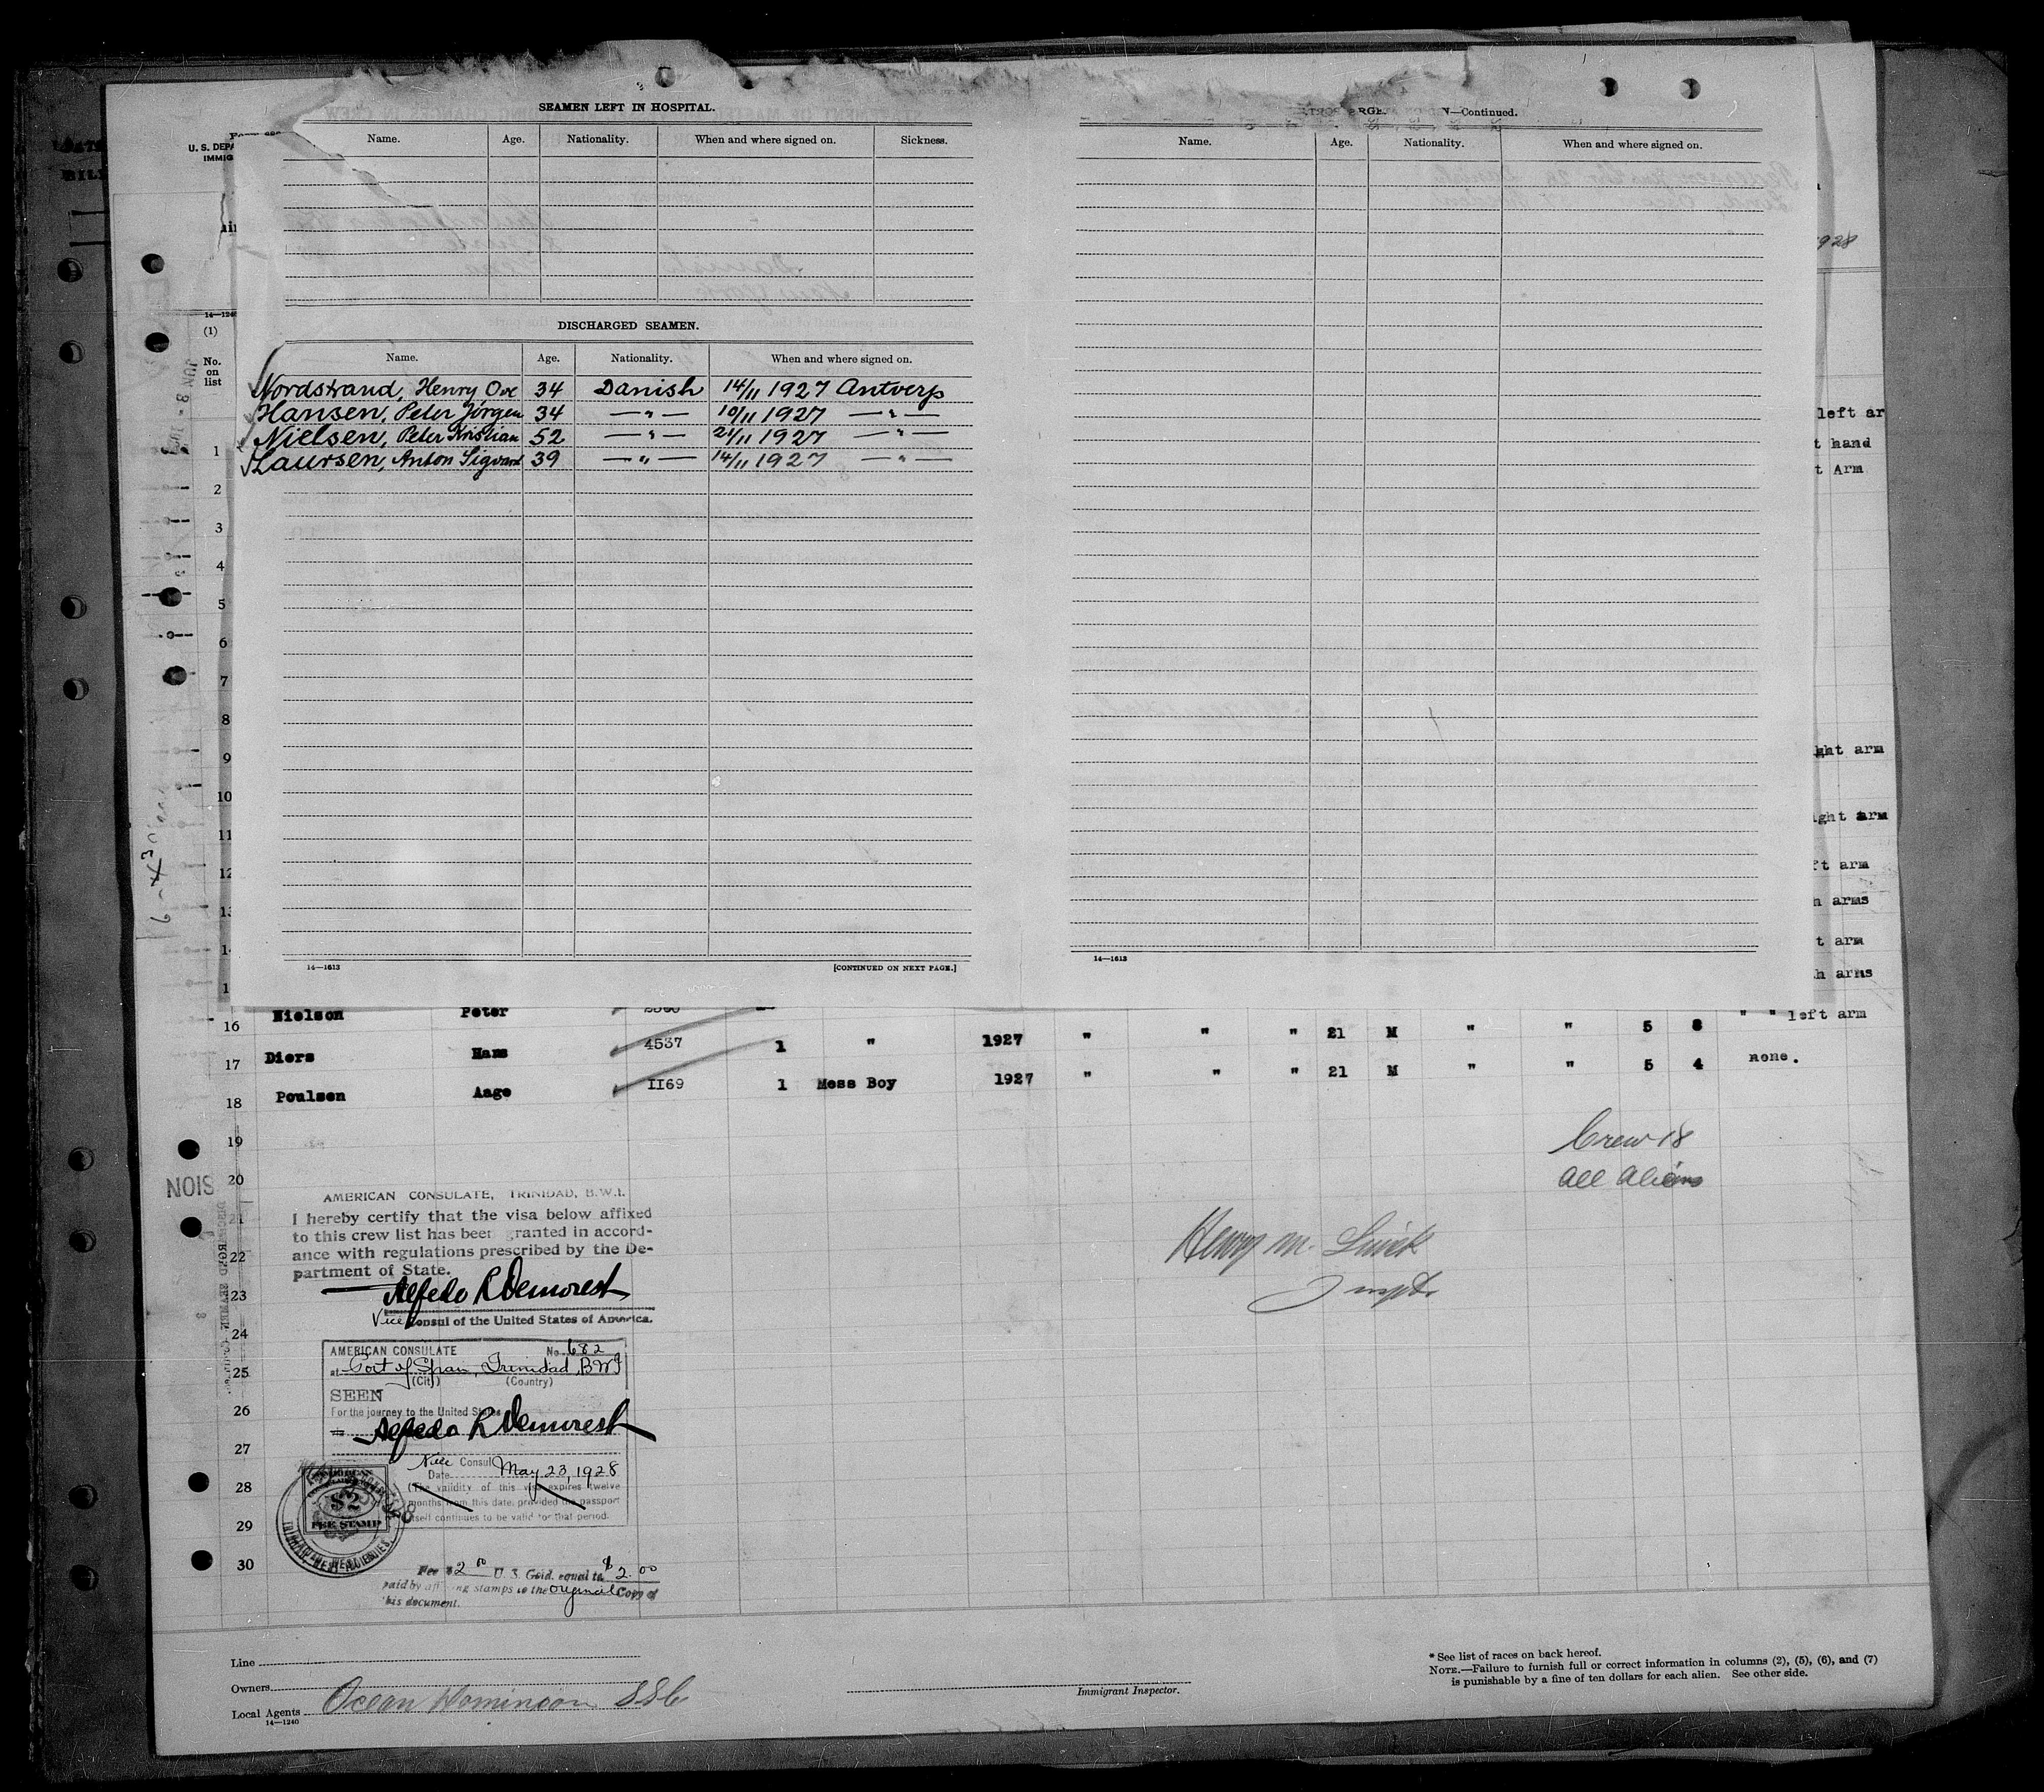 SEAMEN LEFT IN HOSPITAL.
Name. Age. Nationality. When and where signed on. Sickness.
DISCHARGED SEAMEN.
Name. Age. Nationality. When and where signed on.
Nordstrand, Henry Ove 34 Danish 14/11 1927 Antwerp
Hansen, Peter Jörgen 34 —"— 10/11 1927 —"—
Nielsen, Peter Kristian 52 —"— 21/11 1927 —"—
Laursen, Anton Sigvard 39 —"— 14/11 1927 —"—
14—1613 [CONTINUED ON NEXT PAGE.]
N—Continued.
Name. Age. Nationality. When and where signed on.
14—1613
U. S. DEPA
IMMIG
14—124
(1)
No.
on
list
1
2
3
4
5
6
7
8
9
10
11
12
13
1928
left ar
t hand
t Arm
ght arm
ight arm
ft arm
n arms
t arm
h arms
16 Nielson Peter " " left arm
17 Diers Hans 4537 1 " 1927 " " " 21 M " " 5 8 none.
18 Poulsen Aage II69 1 Mess Boy 1927 " " " 21 M " " 5 4
19
20
21
22
23
24
25
26
27
28
29
30
Crew 18
All Aliens
Henry M.
Inspt.
AMERICAN CONSULATE, TRINIDAD, B.W.I.
I hereby certify that the visa below affixed
to this crew list has been granted in accord-
ance with regulations prescribed by the De-
partment of State.
Alfredo R Demorest
Vice Consul of the United States of America.
AMERICAN CONSULATE No. 682
at Port of Spain, Trinidad, B.W.I
(City) (Country)
SEEN
For the journey to the United States
Alfredo R Demorest
Vice Consul
Date May 23, 1928
(The validity of this visa expires twelve
months from this date, provided the passport
itself continues to be valid for that period.
$2
FEE STAMP
Fee $2 00 U. S. Gold. equal to $2.00
paid by affixing stamps to the original Copy of
this document.
Line
Owners
Local Agents Ocean Dominion SSC
14—1240
Immigrant Inspector.
* See list of races on back hereof.
NOTE.—Failure to furnish full or correct information in columns (2), (5), (6), and (7)
is punishable by a fine of ten dollars for each alien. See other side.